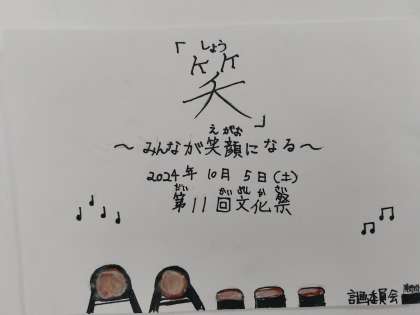 「笑」
しょう
～みんなが笑顔になる～
えがお
2024年 10月 5日(土)
第11回文化祭
だい かい ぶん か さい
計画委員会